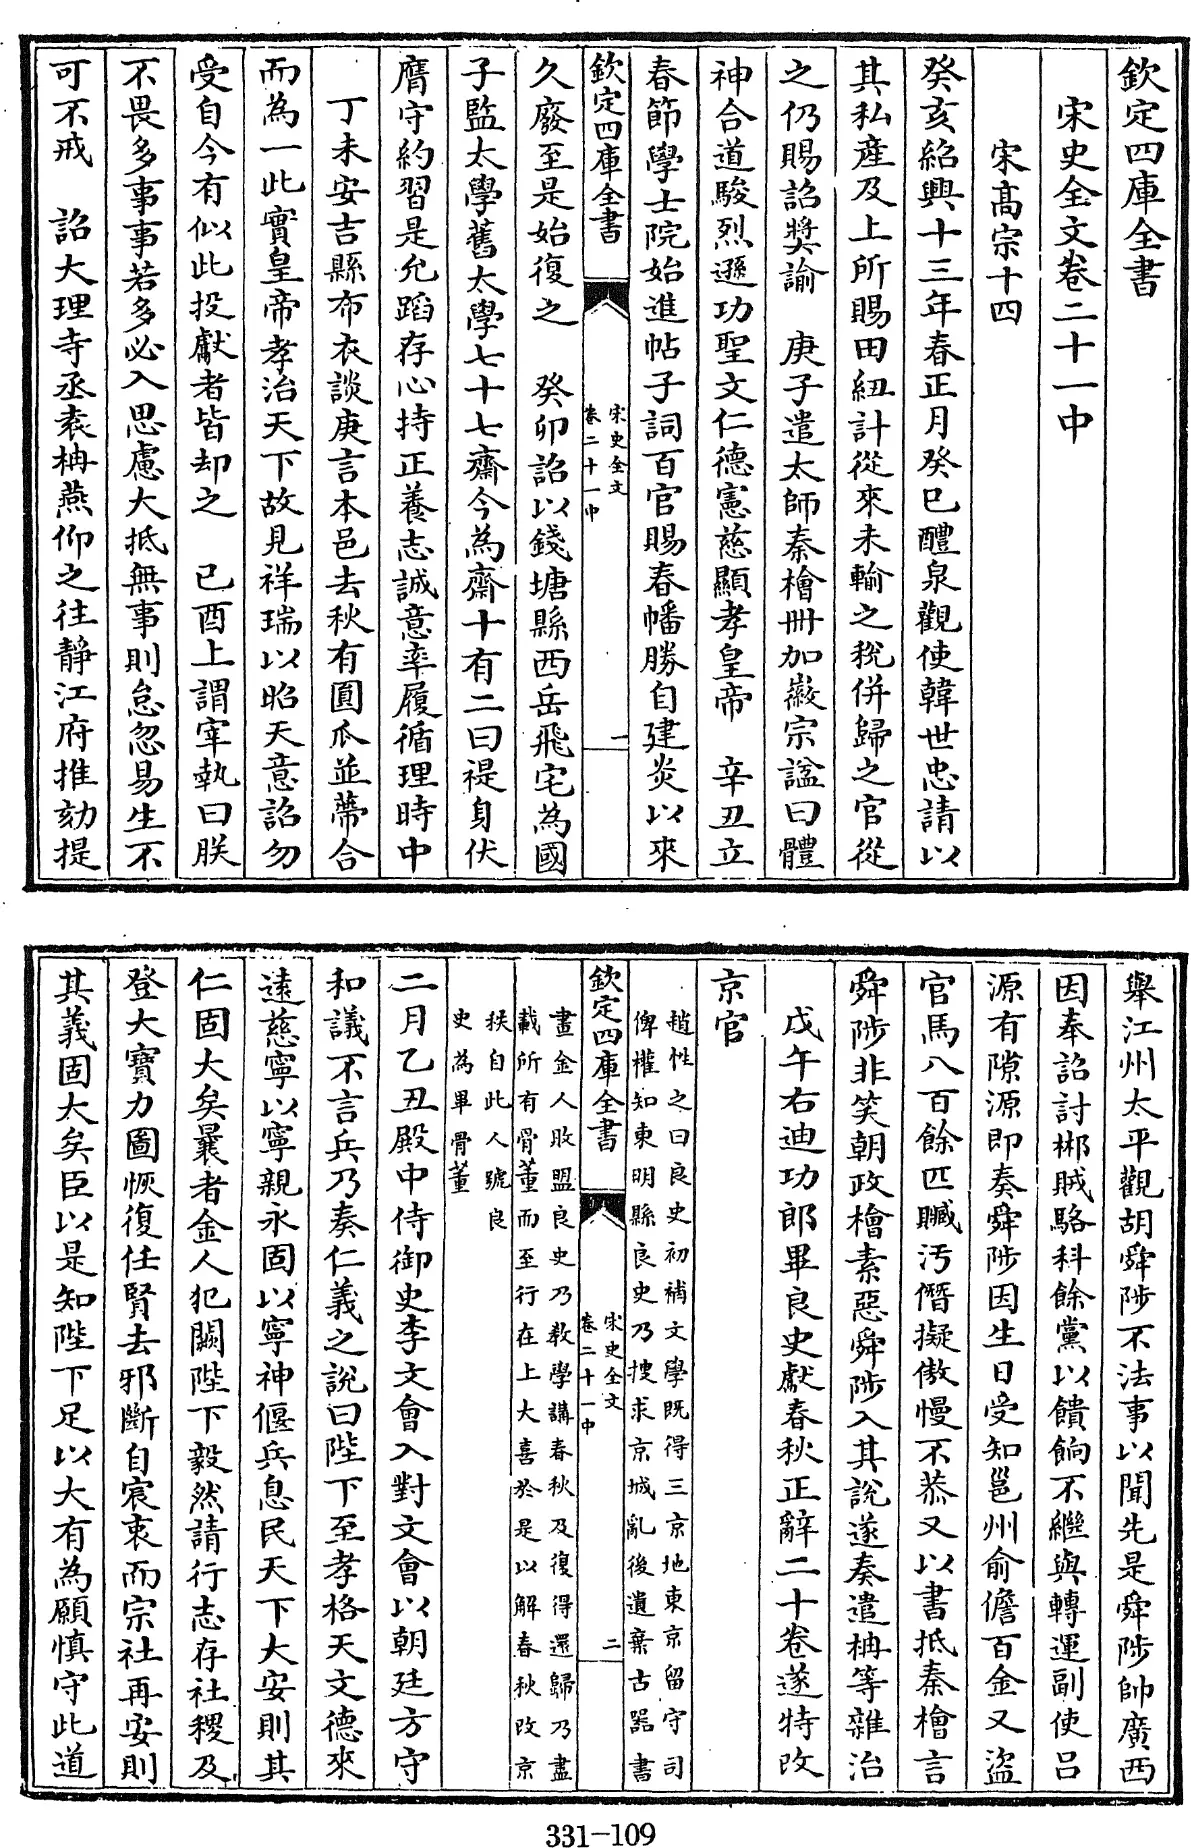 欽定四庫全書
宋史全文卷二十一中
宋髙宗十四
癸亥紹興十三年春正月癸巳醴泉觀使韓世忠請以
其私産及上所賜田紐計從來未輸之稅併歸之官從
之仍賜詔奬諭　庚子遣太師秦檜冊加徽宗諡曰體
神合道駿烈遜功聖文仁德憲慈顯孝皇帝　辛丑立
春節學士院始進帖子詞百官賜春幡勝自建炎以來
欽定四庫全書
宋史全文
卷二十一中
一
久廢至是始復之　癸卯詔以錢塘縣西岳飛宅為國
子監太學舊太學七十七齋今為齋十有二曰禔身伏
膺守約習是允蹈存心持正養志誠意率履循理時中
丁未安吉縣布衣談庚言本邑去秋有圓瓜並蔕合
而為一此實皇帝孝治天下故見祥瑞以昭天意詔勿
受自今有似此投獻者皆却之　己酉上謂宰執曰朕
不畏多事事若多必入思慮大抵無事則怠忽易生不
可不戒　詔大理寺丞袁柟燕仰之往靜江府推劾提
舉江州太平觀胡舜陟不法事以聞先是舜陟帥廣西
因奉詔討郴賊駱科餘黨以饋餉不繼與轉運副使吕
源有隙源即奏舜陟因生日受知邕州俞儋百金又盜
官馬八百餘匹贓汚僭擬傲慢不恭又以書抵秦檜言
舜陟非笑朝政檜素惡舜陟入其說遂奏遣柟等雜治
戊午右迪功郎畢良史獻春秋正辭二十卷遂特改
京官
趙甡之曰良史初補文學既得三京地東京留守司
俾權知東明縣良史乃搜求京城亂後遺棄古器書
欽定四庫全書
宋史全文
卷二十一中
二
畫金人敗盟良史乃教學講春秋及復得還歸乃盡
載所有骨董而至行在上大喜於是以解春秋改京
秩自此人號良
史為畢骨董
二月乙丑殿中侍御史李文會入對文會以朝廷方守
和議不言兵乃奏仁義之說曰陛下至孝格天文德來
逺慈寧以寧親永固以寧神偃兵息民天下大安則其
仁固大矣曩者金人犯闕陛下毅然請行志存社稷及
登大寶力圖恢復任賢去邪斷自宸衷而宗社再安則
其義固大矣臣以是知陛下足以大有為願慎守此道
331-109